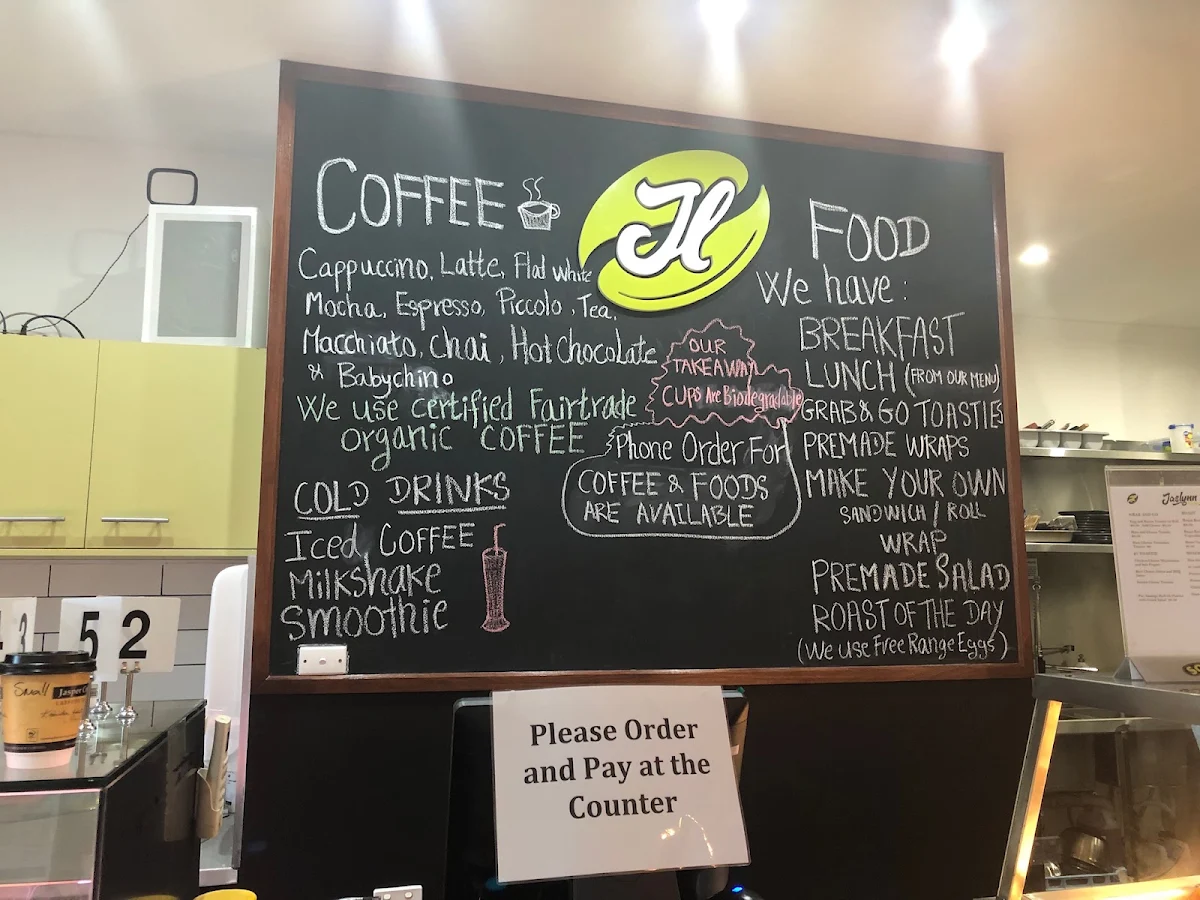 COFFEE
Cappuccino, Latte, Flat white
Mocha, Espresso, Piccolo, Tea,
Macchiato, Chai, Hot Chocolate
& Babychino
We use certified Fairtrade
organic COFFEE
COLD DRINKS
Iced COFFEE
Milkshake
Smoothie
Jl
OUR
TAKEAWAY
CUPS Are Biodegradable
Phone Order For
COFFEE & FOODS
ARE AVAILABLE
FOOD
We have:
BREAKFAST
LUNCH (FROM OUR MENU)
GRAB & GO TOASTIES
PREMADE WRAPS
MAKE YOUR OWN
SANDWICH / ROLL
WRAP
PREMADE SALAD
ROAST OF THE DAY
(We use Free Range Eggs)
Please Order
and Pay at the
Counter
3
5
2
Small
Jasper
Joslynn